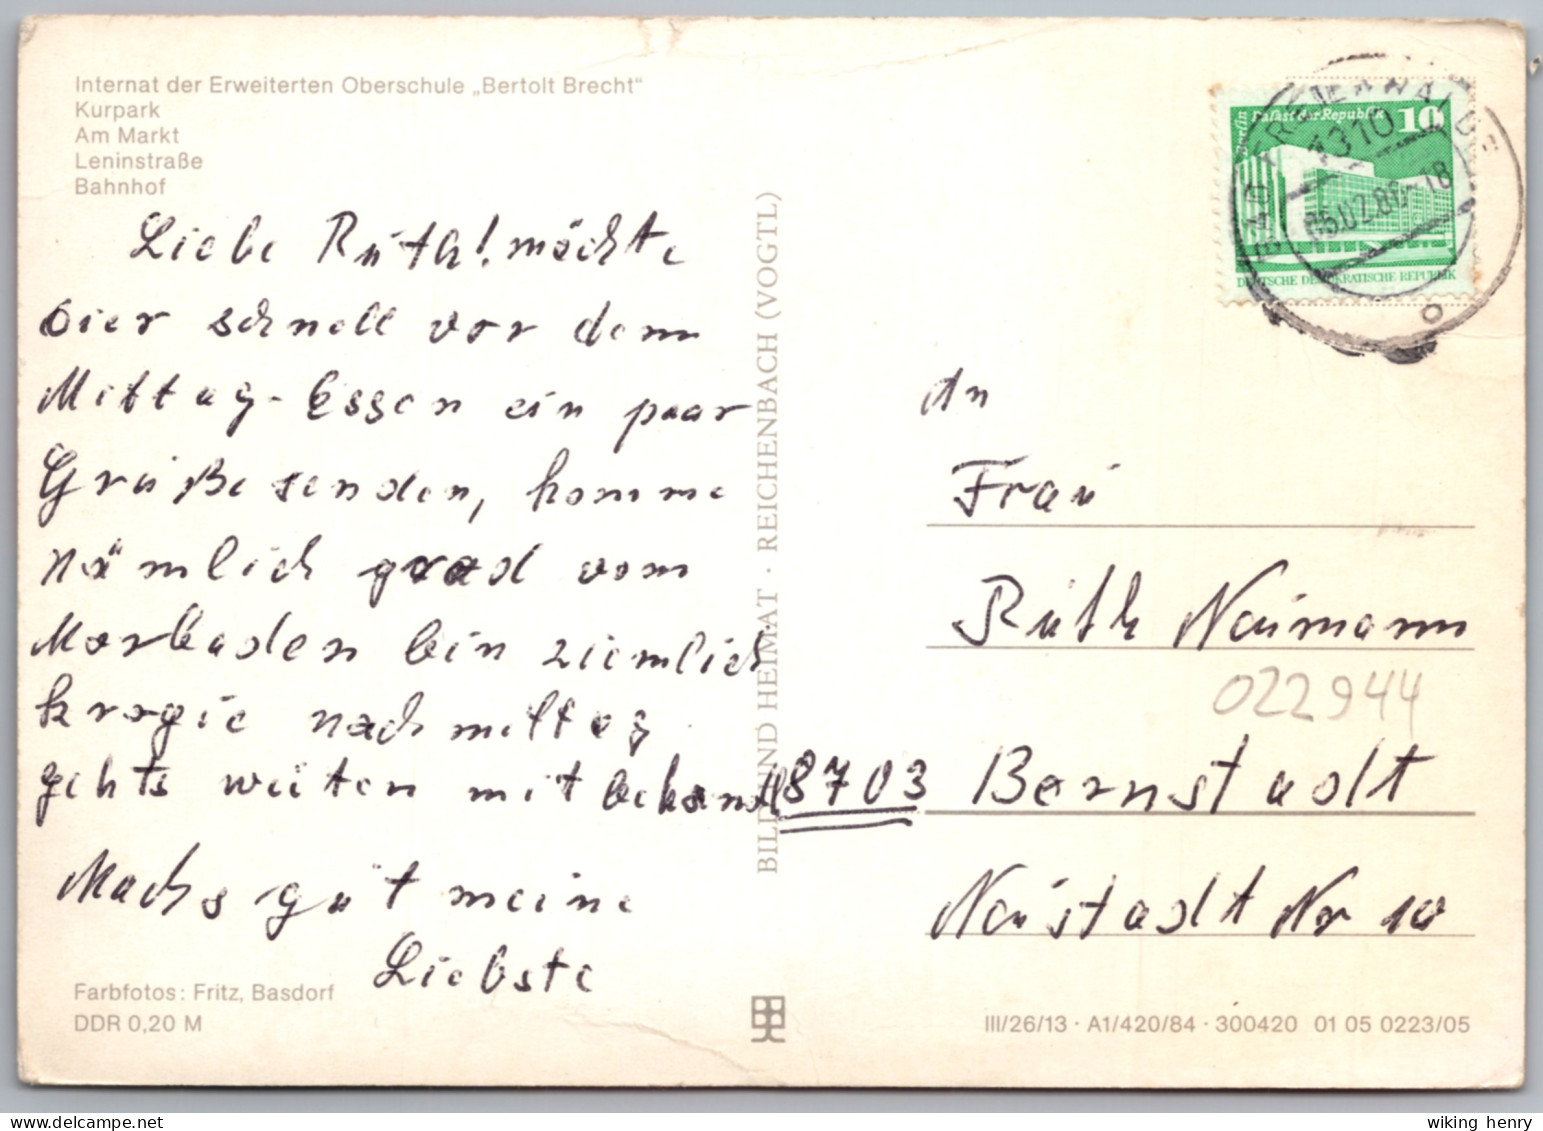 Internat der Erweiterten Oberschule „Bertolt Brecht“
Kurpark
Am Markt
Leninstraße
Bahnhof
Liebe Ruth! möchte
hier schnell vor dem
Mittag-Essen ein paar
Grüße senden, komme
nämlich grad vom
Morbaden bin ziemlich
nachmittag
gehts weiter mit
Machs gut meine
Liebste
Farbfotos: Fritz, Basdorf
DDR 0,20 M
BILD UND HEIMAT · REICHENBACH (VOGTL)
Berlin Palast der Republik 10
DEUTSCHE DEMOKRATISCHE REPUBLIK
BAD FREIENWALDE
1310
05.02.86-18
An
Frau
Ruth Naumann
022944
8703 Bernstadt
Neustadt Nr 10
III/26/13 · A1/420/84 · 300420 01 05 0223/05
wiking henry